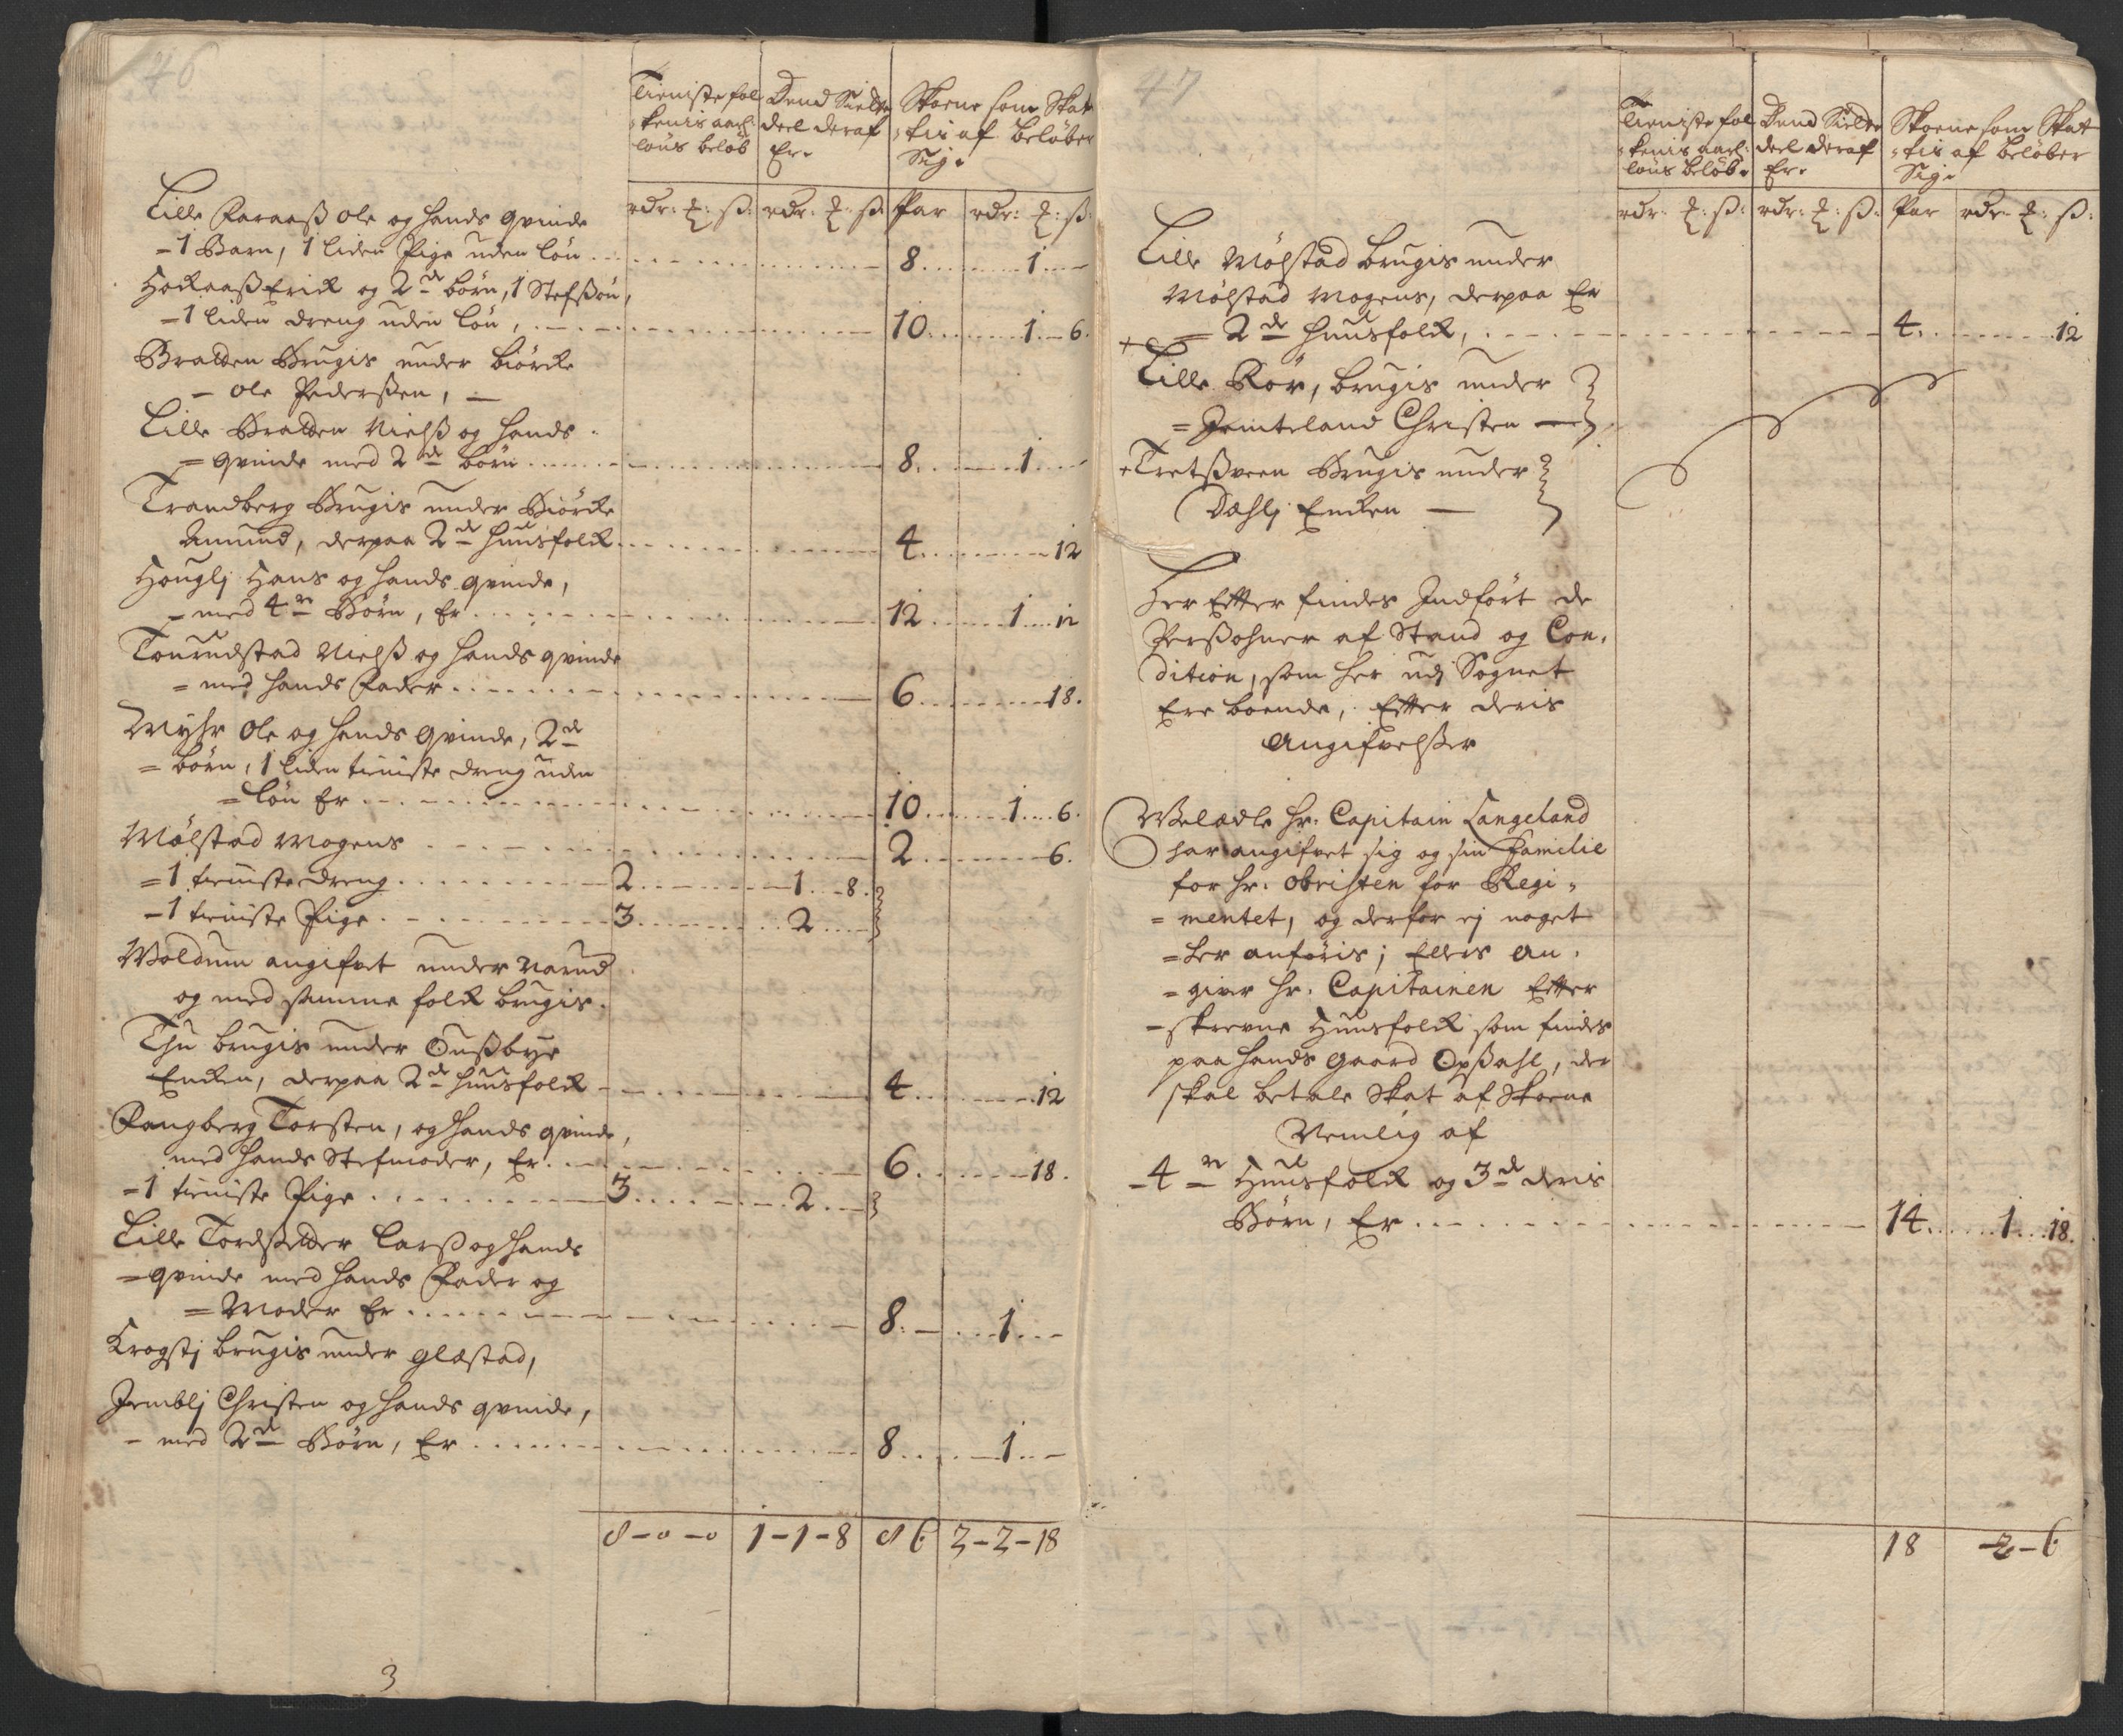 46
Tieniste fol
kenis aarl:
löns beløb
Dend Siette
deel deraf
Er
Skoene som Skat
tis af beløber
Sig.
rdr: ƺ: ß: rdr: ƺ: ß: Par rdr: ƺ: ß:
Lille Faraaß Ole og hands qvinde
- 1 Barn, 1 liden Pige uden løn 8 1
Hoekaaß Erick og 2de børn, 1 Stefsøn,
- 1 liden dreng uden løn, 10 1 6.
Bratten Brugis under biørcke
- Ole Pederßen,
Lille Bratten Nielß og hands
= qvinde med 2de børn 8 1
Trandberg Brugis under Biørcke
Amund, derpaa 2de huusfolck 4 12
Houglj Hans og hands qvinde,
- med 4re Børn, Er 12 1 12
Tourudstad Nielß og hands qvinde
= med hands Fader 6 18.
Myhr Ole og hands qvinde, 2de
= børn, 1 liden tieniste dreng uden
= løn Er 10 1 6.
Mølstad Mogens 2 6.
= 1 tienistedreng 2 1 8.
- 1 tieniste Pige 3 2
Woldum angifvet under Narud
og med samme folck brugis.
Thu brugis under Oußbye
Encken, derpaa 2de huusfolck 4 12
Rangberg Torsten, og hands qvinde,
med hands Stefmoder, Er 6 18.
= 1 tieniste Pige 3 2
Lille Tordsætter Larß og hands
= qvinde med hands Fader og
= Moder Er 8 1
Krogstj brugis under Glæstad,
Jemblj Christen og hands qvinde,
- med 2de Børn, Er 8 1
8-0-0 1-1-8 86 2-2-18
3
47
Tieniste fol
kenis aarl:
löns beløb.
Dend Siette
deel deraf
Er.
Skoene som Skat
tis af beløber
Sig.
rdr: ƺ: ß: rdr: ƺ: ß: Par rdr: ƺ: ß:
Lille Mølstad brugis under
Mølstad Mogens, derpaa Er
= 2de huusfolck, 4. 12
+ Lille Rör, brugis under
= Jemteland Christen
+ Tretßveen Brugis under
Dæhlj Encken
Her Efter findes Indført de
Perßohner af Stand og Con,
dition, som her udj Sognet
Ere boende, Efter deris
Angifvelßer
Welædle hr. Capitain Langeland
har angifvet sig og sin Familie
for hr. Obristen for Regi,
= mentet, og derfor ej noget
= her anføris; Ellers an,
= giver hr. Capitainen Efter
- skrevne Huusfolck som findes
paa hands gaard Opßahl, der
skal betale Skat af Skoene
Nemlig af
- 4re Huusfolck og 3de deris
Børn, Er 14 1 18.
18 2-6